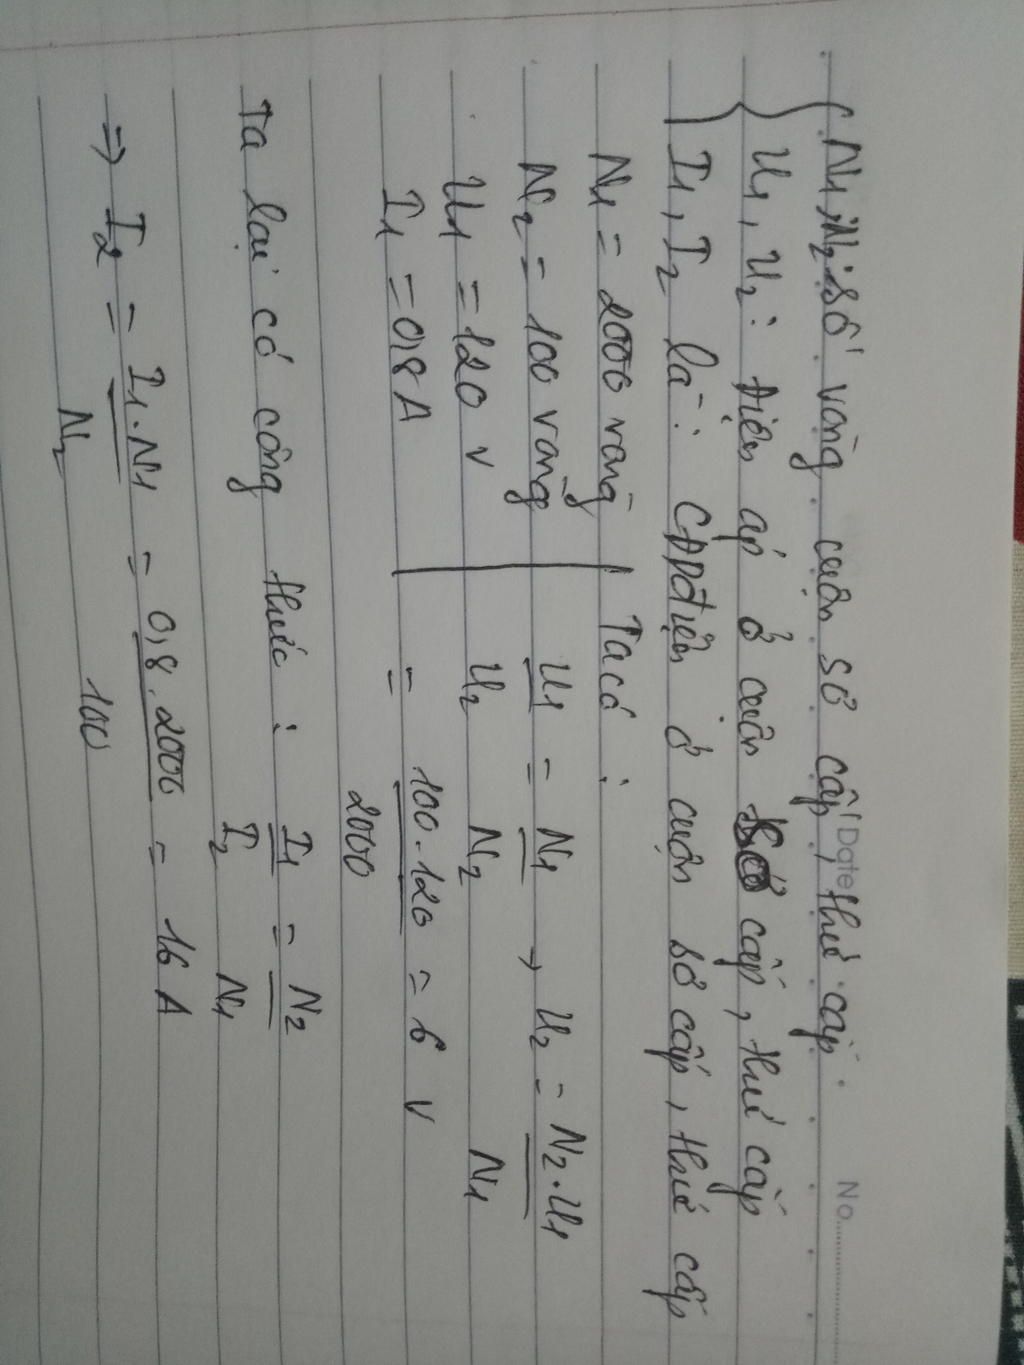 Date No.
N1, N2: số vòng cuộn sơ cấp, thứ cấp.
U1, U2: Điện áp ở cuộn sơ cấp, thứ cấp
I1, I2 là: CĐDđiện ở cuộn sơ cấp, thứ cấp
N1 = 2000 vòng | Ta có:
N2 = 100 vòng | U1/U2 = N1/N2 → U2 = N2.U1/N1
U1 = 120 V
I1 = 0,8 A | = 100.120/2000 = 6 V
Ta lại có công thức: I1/I2 = N2/N1
=> I2 = I1.N1/N2 = 0,8.2000/100 = 16 A